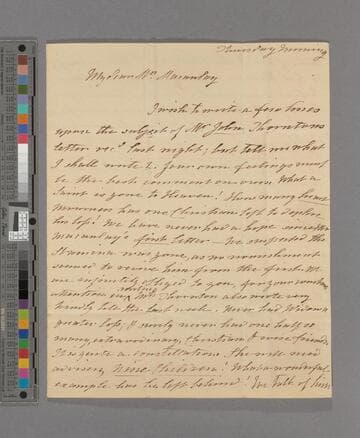 Thursday Morning
My dear Mrs. Macaulay
I wish to write a few lines
upon the subject of Mr John Thorntons
letter recd. last night; but tell me what
I shall write? your own feelings must
be the best comment on ours. What a
Saint is gone to Heaven! How many
mourners has one Christian left to deplore
his loss! We have never had a hope since Mr
Macaulay's first letter — We
was gone, as no nourishment
seemed to revive him from the first. We
are obliged to you, for your
attention, Mrs Thornton also wrote very
kindly late the last week. Never had
greater loss, & surely never had one half so
many extraordinary, Christian & wise friends.
It is quite a constellation. the
Nine Children! What a wonderful
example has he left behind! We talk of him